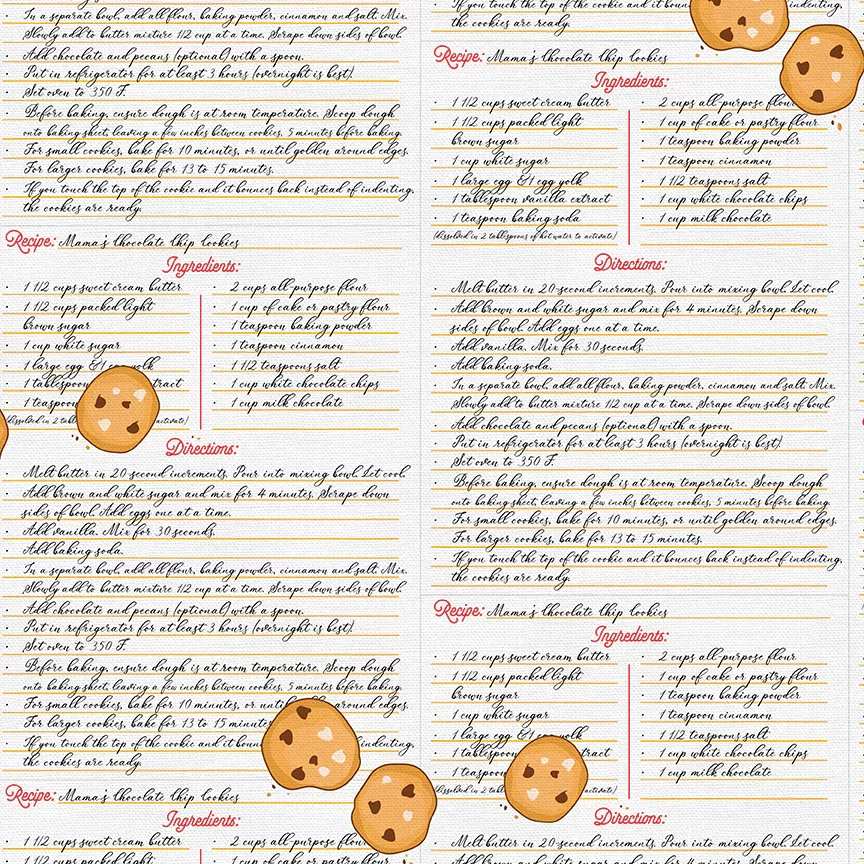 In a separate bowl, add all flour, baking powder, cinnamon and salt. Mix.
Slowly add to butter mixture 1/2 cup at a time. Scrape down sides of bowl.
Add chocolate and pecans (optional) with a spoon.
Put in refrigerator for at least 3 hours (overnight is best).
Set oven to 350 F.
Before baking, ensure dough is at room temperature. Scoop dough
onto baking sheet, leaving a few inches between cookies, 5 minutes before baking.
For small cookies, bake for 10 minutes, or until golden around edges.
For larger cookies, bake for 13 to 15 minutes.
If you touch the top of the cookie and it bounces back instead of indenting,
the cookies are ready.
Recipe: Mama's Chocolate Chip Cookies
Ingredients:
1 1/2 cups sweet cream butter
1 1/2 cups packed light
brown sugar
1 cup white sugar
1 large egg & 1 egg yolk
1 tablespoon tract
1 teaspoo
(dissolved in 2 tabl activate)
2 cups all-purpose flour
1 cup of cake or pastry flour
1 teaspoon baking powder
1 teaspoon cinnamon
1 1/2 teaspoons salt
1 cup white chocolate chips
1 cup milk chocolate
Directions:
Melt butter in 20-second increments. Pour into mixing bowl. Let cool.
Add brown and white sugar and mix for 4 minutes. Scrape down
sides of bowl. Add eggs one at a time.
Add vanilla. Mix for 30 seconds.
Add baking soda.
In a separate bowl, add all flour, baking powder, cinnamon and salt. Mix.
Slowly add to butter mixture 1/2 cup at a time. Scrape down sides of bowl.
Add chocolate and pecans (optional) with a spoon.
Put in refrigerator for at least 3 hours (overnight is best).
Set oven to 350 F.
Before baking, ensure dough is at room temperature. Scoop dough
onto baking sheet, leaving a few inches between cookies, 5 minutes before baking.
For small cookies, bake for 10 minutes, or until around edges.
For larger cookies, bake for 13 to 15 minutes
If you touch the top of the cookie and it boun indenting,
the cookies are ready.
Recipe: Mama's Chocolate Chip Cookies
Ingredients:
1 1/2 cups sweet cream butter
1 1/2 cups packed light
2 cups all-purpose flour
1 cup of cake or pastry flour
If you touch the top of the cookie and it boun
the cookies are ready.
Recipe: Mama's Chocolate Chip Cookies
Ingredients:
1 1/2 cups sweet cream butter
1 1/2 cups packed light
brown sugar
1 cup white sugar
1 large egg & 1 egg yolk
1 tablespoon vanilla extract
1 teaspoon baking soda
(dissolved in 2 tablespoons of hot water to activate)
2 cups all-purpose flour
1 cup of cake or pastry flour
1 teaspoon baking powder
1 teaspoon cinnamon
1 1/2 teaspoons salt
1 cup white chocolate chips
1 cup milk chocolate
Directions:
Melt butter in 20-second increments. Pour into mixing bowl. Let cool.
Add brown and white sugar and mix for 4 minutes. Scrape down
sides of bowl. Add eggs one at a time.
Add vanilla. Mix for 30 seconds.
Add baking soda.
In a separate bowl, add all flour, baking powder, cinnamon and salt. Mix.
Slowly add to butter mixture 1/2 cup at a time. Scrape down sides of bowl.
Add chocolate and pecans (optional) with a spoon.
Put in refrigerator for at least 3 hours (overnight is best).
Set oven to 350 F.
Before baking, ensure dough is at room temperature. Scoop dough
onto baking sheet, leaving a few inches between cookies, 5 minutes before baking.
For small cookies, bake for 10 minutes, or until golden around edges.
For larger cookies, bake for 13 to 15 minutes.
If you touch the top of the cookie and it bounces back instead of indenting,
the cookies are ready.
Recipe: Mama's Chocolate Chip Cookies
Ingredients:
1 1/2 cups sweet cream butter
1 1/2 cups packed light
brown sugar
1 cup white sugar
1 large egg & 1 egg yolk
1 tablespoon tract
1 teaspoo
(dissolved in 2 tabl activate)
2 cups all-purpose flour
1 cup of cake or pastry flour
1 teaspoon baking powder
1 teaspoon cinnamon
1 1/2 teaspoons salt
1 cup white chocolate chips
1 cup milk chocolate
Directions:
Melt butter in 20-second increments. Pour into mixing bowl. Let cool.
Add brown and white sugar and mix for 4 minutes. Scrape down